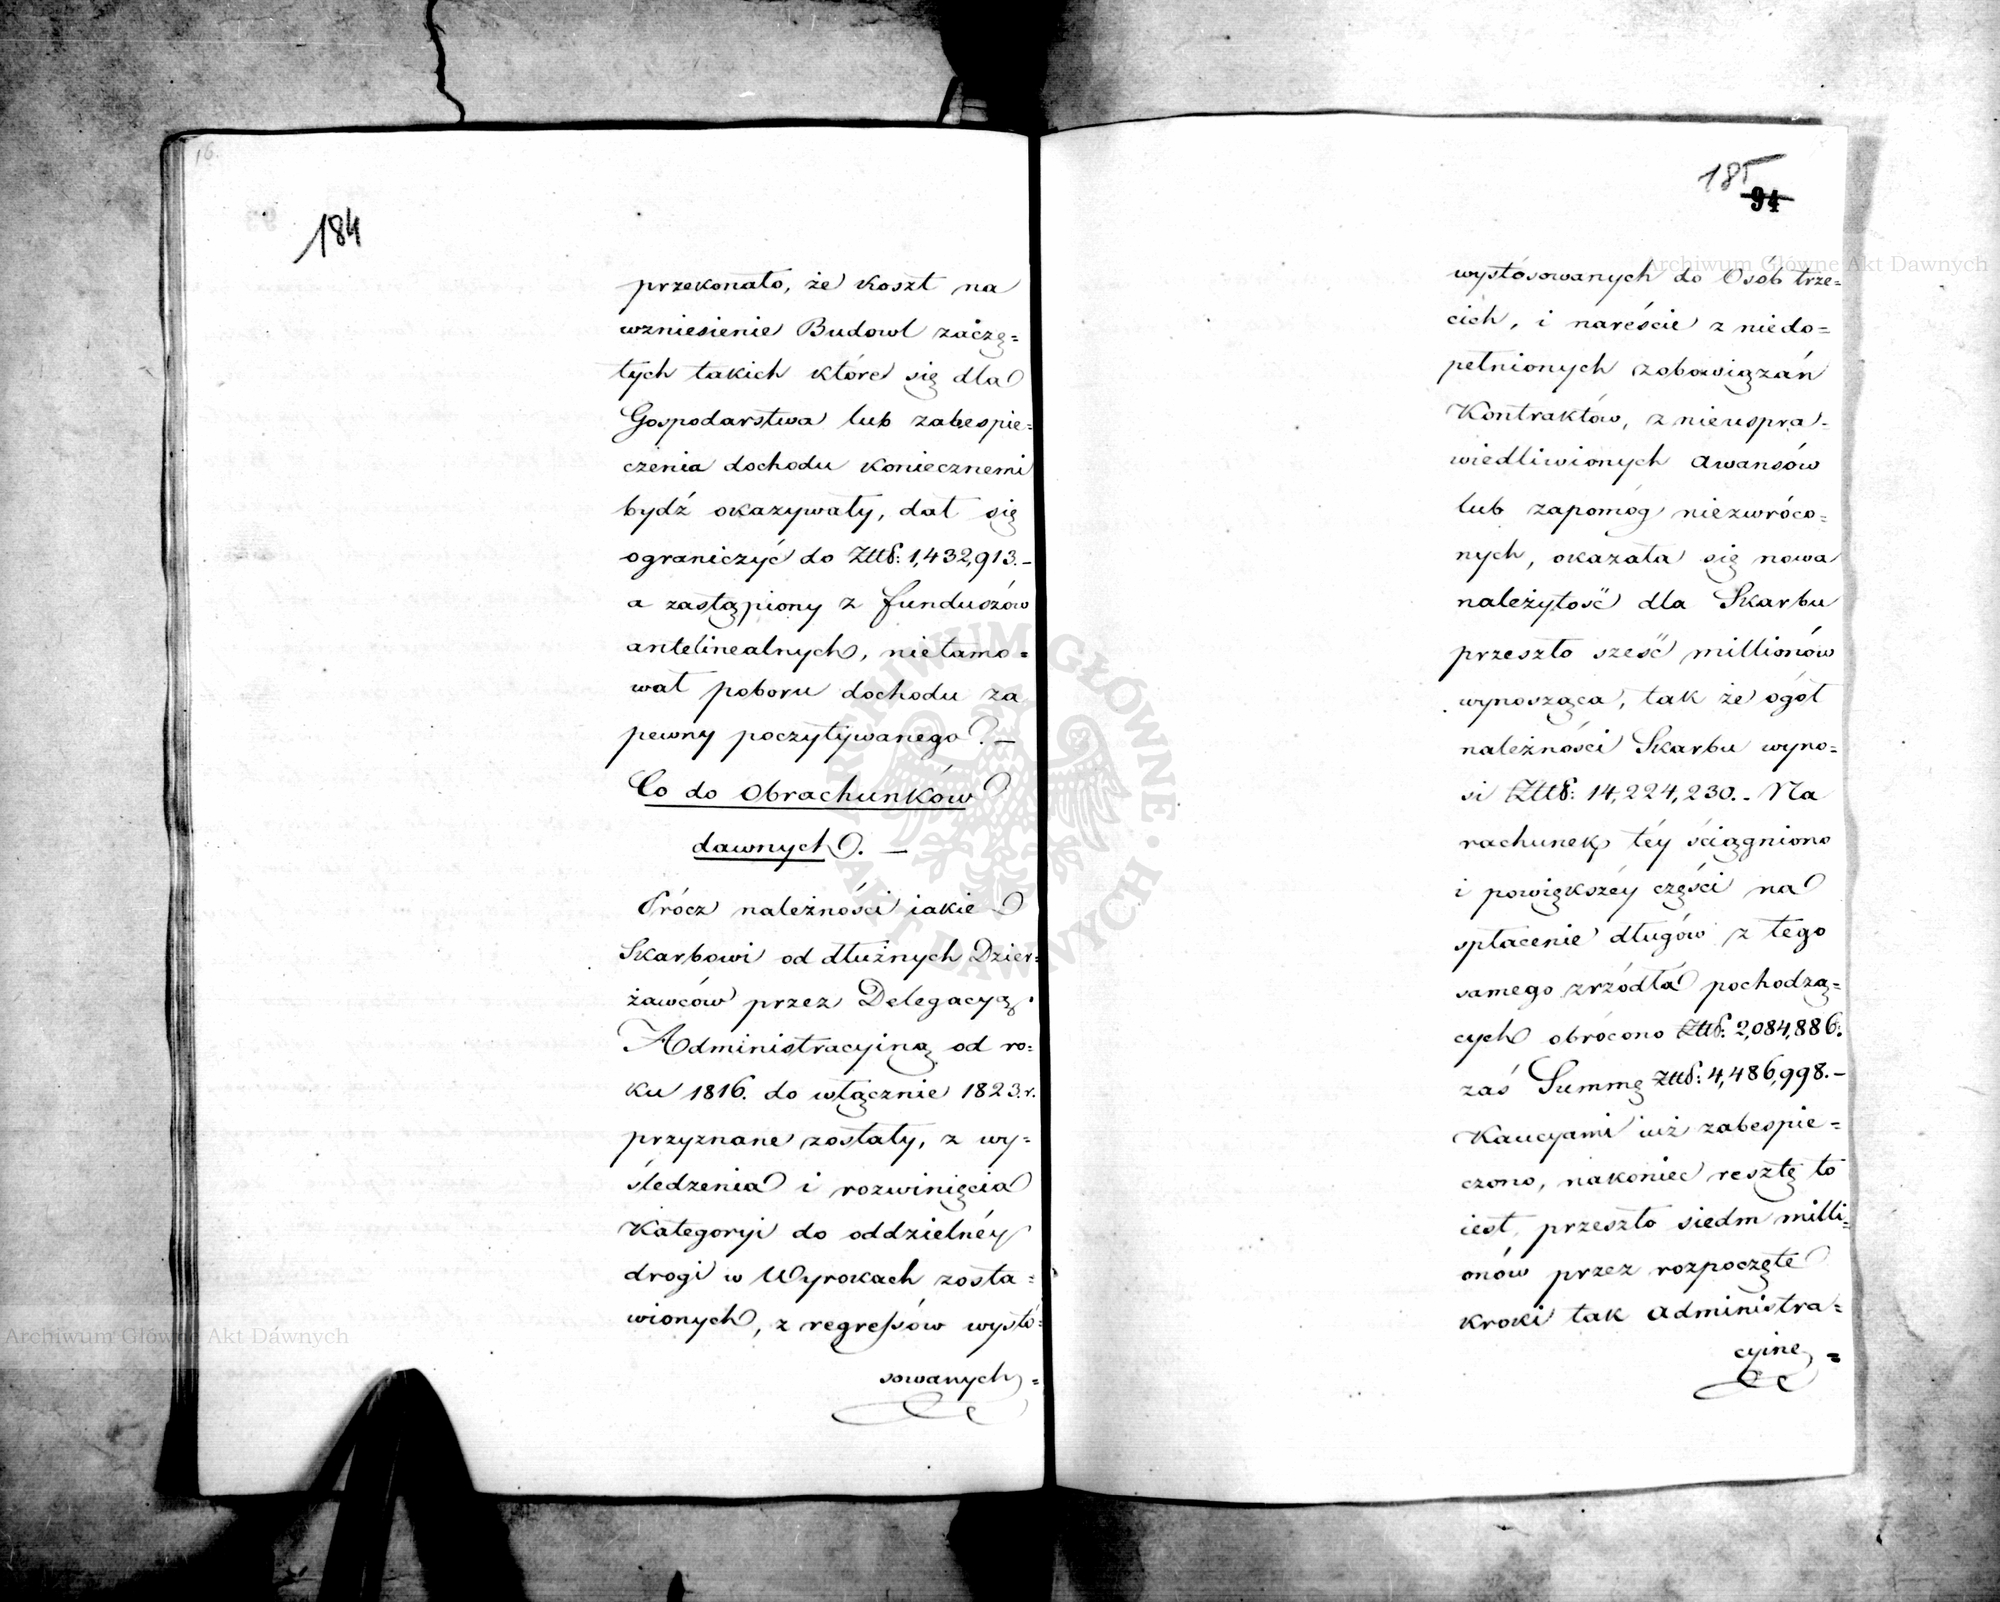 16.
184
przekonało, że koszt na
wzniesienie Budowl zaczę=
tych takich które się dla
Gospodarstwa lub zabespie=
czenia dochodu koniecznemi
bydź okazywały, dał się
ograniczyć do Złłp: 1,432,913.–
a zastąpiony z funduszów
antelinealnych, nietamo=
wał poboru dochodu za
pewny poczytywanego? –
Co do Obrachunków
dawnych. –
Prócz należności iakie
Skarbowi od dłużnych Dzier=
żawców przez Delegacyą
Administracyiną od ro=
ku 1816. do włącznie 1823.r.
przyznane zostały, z wy=
śledzenia i rozwinięcia
Kategoryi do oddzielnéy
drogi w Wyrokach zosta=
wionych, z regressów wystó=
sowanych =
185
94
wystósowanych do Osób trze=
cich, i nareście z niedo=
pełnionych zobowiązań
Kontraktów, z nieuspra=
wiedliwionych awansów
lub zapomóg niezwróco=
nych, okazała się nowa
należytość dla Skarbu
przeszło sześć millionów
wynosząca, tak że ogół
należności Skarbu wyno=
si Złłp: 14,224,230.– Na
rachunek téy ściągniono
i powiększéy części na
spłacenie długów z tego
samego zrzódła pochodzą=
cych obrócono Złłp: 2,084,886:
zaś Summę Złłp: 4,486,998.–
Kaucyami iuż zabespie=
czono, nakoniec resztę to
iest, przeszło siedm milli=
onów przez rozpoczęte
kroki tak administra=
cyine =
Archiwum Główne Akt Dawnych
Archiwum Główne Akt Dawnych
ARCHIWUM GŁÓWNE AKT DAWNYCH